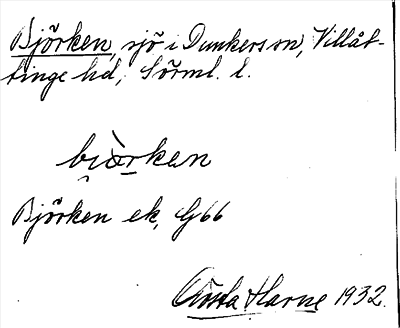 Björken, sjö i Dunkers sn, Villåt-
tinge hd, Sörml. l.
bi̯ò̱rken
Björken ek, G66
Ånta Harne 1932.